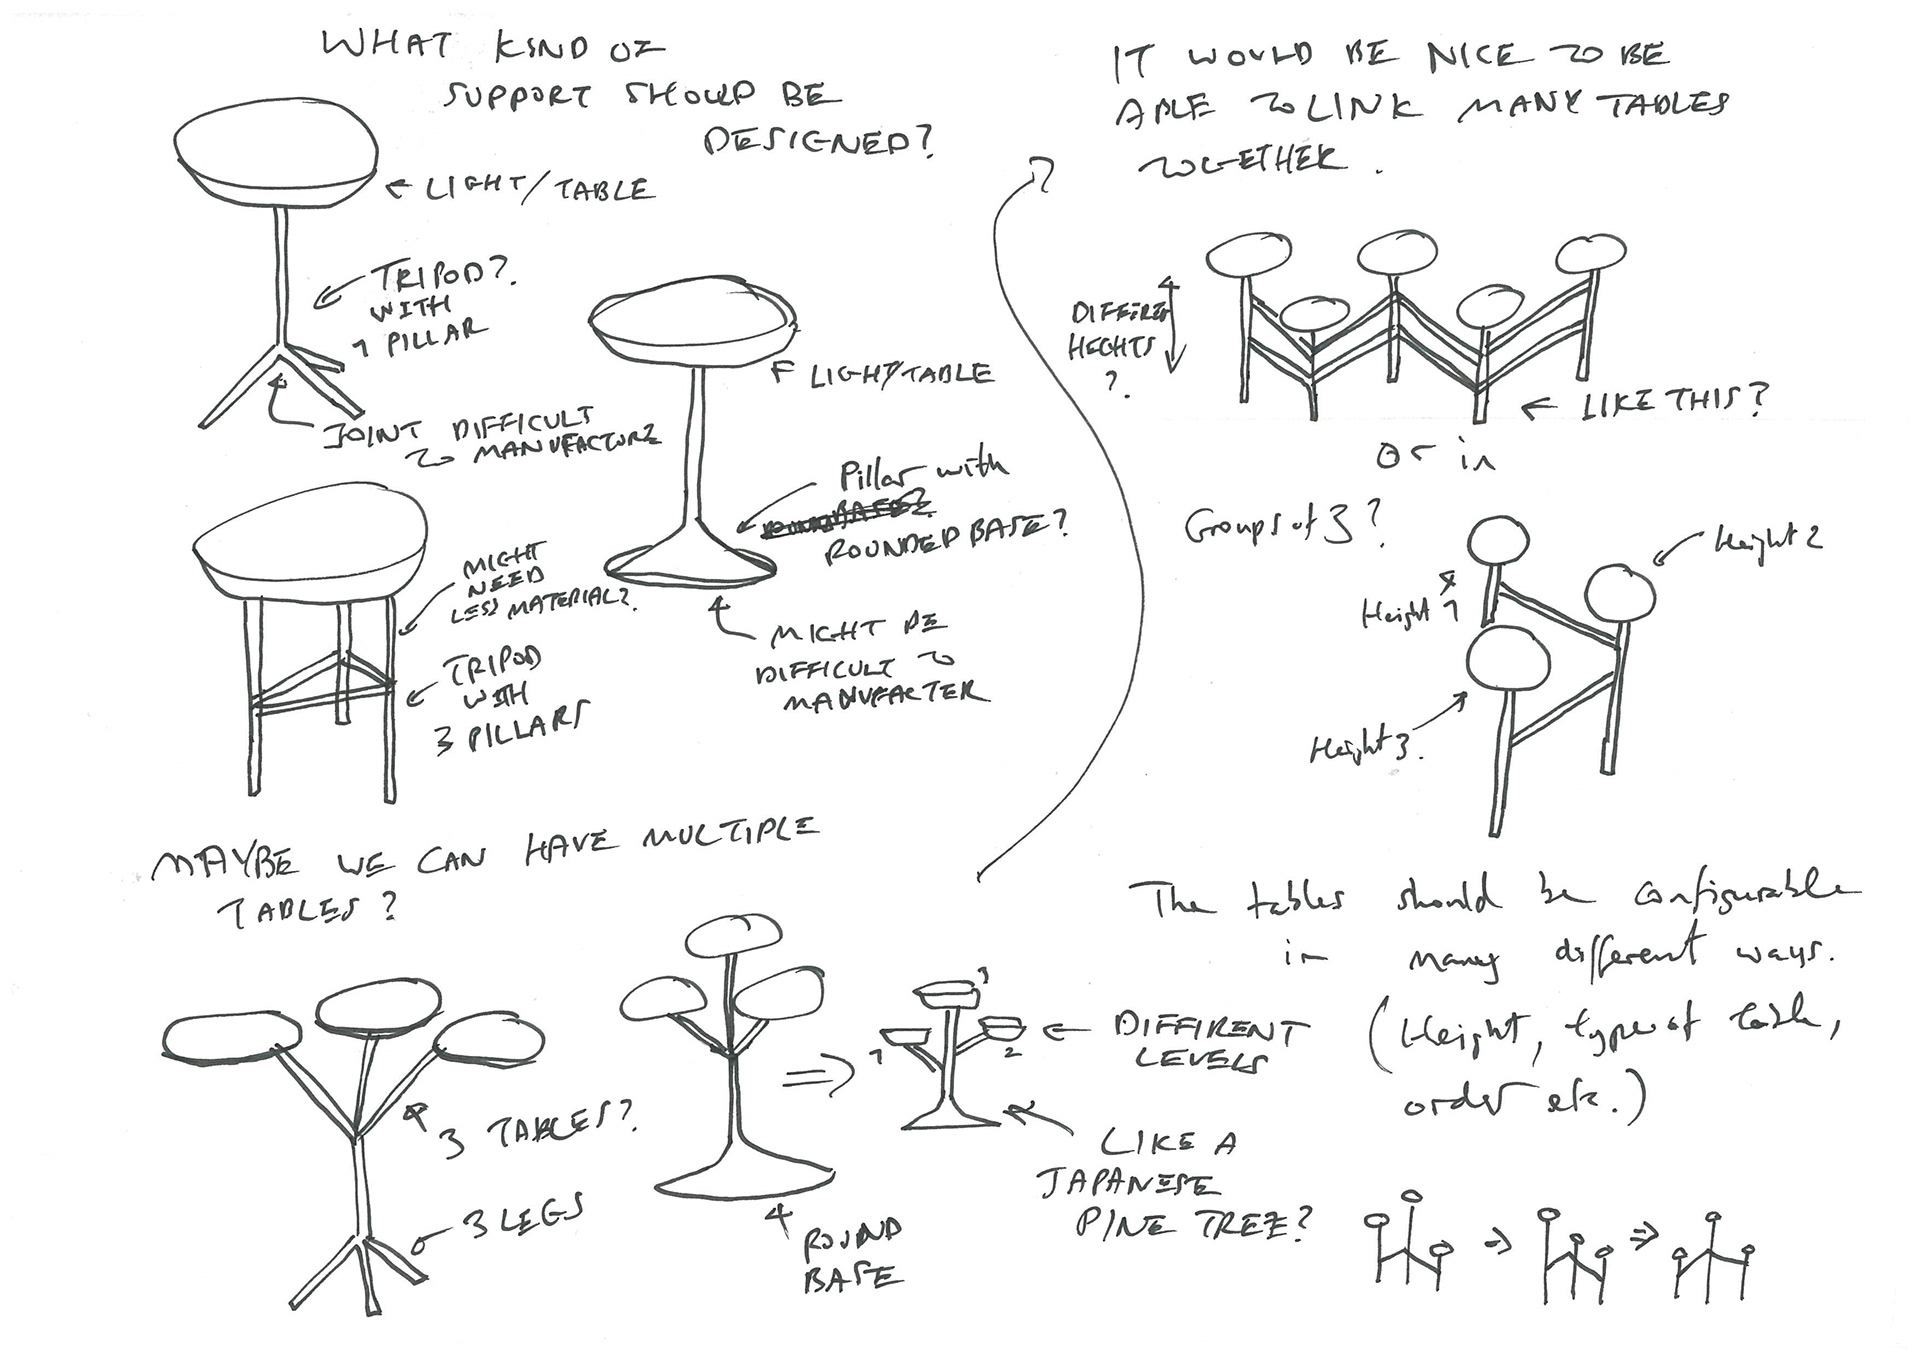 WHAT KIND OF
SUPPORT SHOULD BE
DESIGNED?
← LIGHT/TABLE
TRIPOD?
WITH
1 PILLAR
JOINT DIFFICULT
TO MANUFACTURE
← LIGHT/TABLE
Pillar with
ROUNDED BASE?
MIGHT BE
DIFFICULT TO
MANUFACTER
MIGHT
NEED
LESS MATERIAL?
TRIPOD
WITH
3 PILLARS
MAYBE WE CAN HAVE MULTIPLE
TABLES?
3 TABLES?
3 LEGS
ROUND
BASE
3
1
2
← DIFFIRENT
LEVELS
LIKE A
JAPANESE
PINE TREE?
IT WOULD BE NICE TO BE
ABLE TO LINK MANY TABLES
TOGETHER.
HEGHTS
?
← LIKE THIS?
or in
Groups of 3?
Height 1
Height 2
Height 3.
The tables should be configurable
in many different ways.
(Height, type of table,
order etc.)